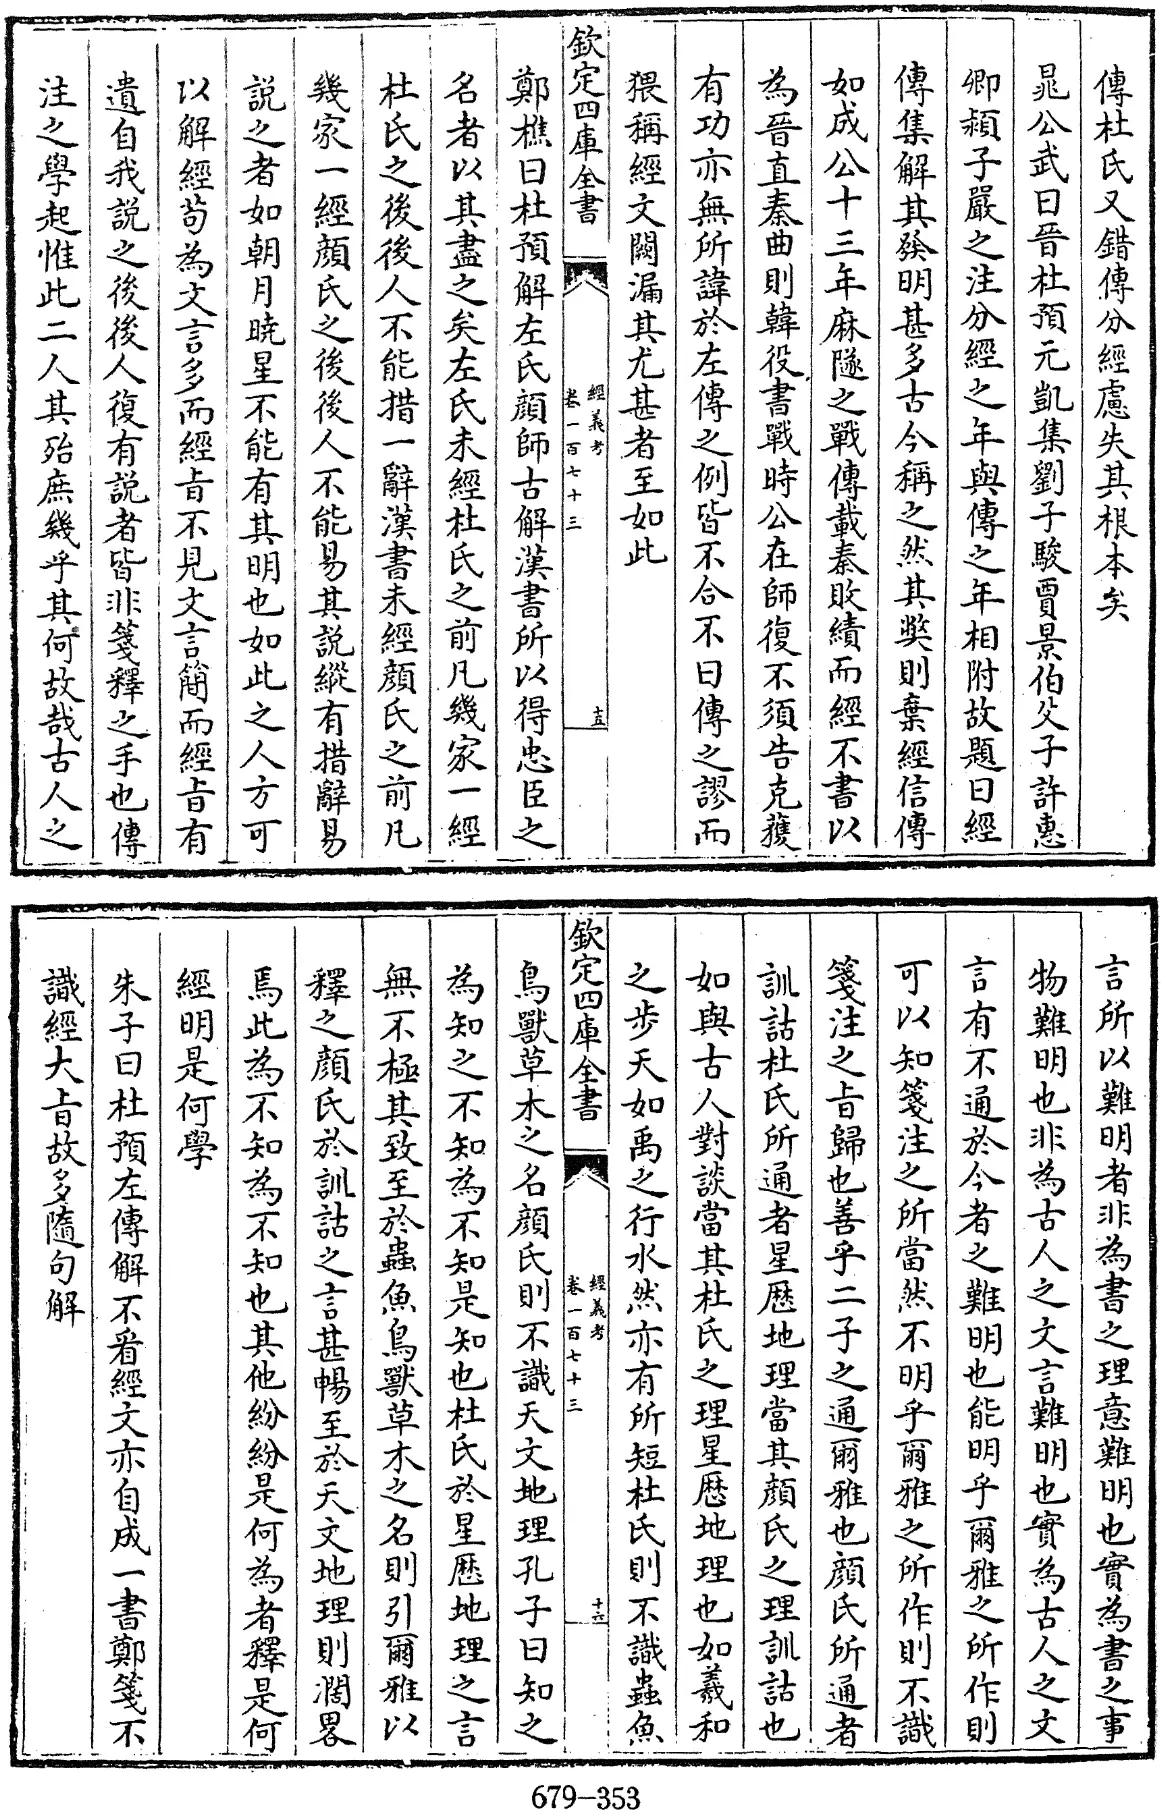 傳杜氏又錯傳分經慮失其根本矣
晁公武曰晉杜預元凱集劉子駿賈景伯父子許惠
卿潁子嚴之注分經之年與傳之年相附故題曰經
傳集解其發明甚多古今稱之然其獘則棄經信傳
如成公十三年麻隧之戰傳載秦敗績而經不書以
為晉直秦曲則韓役書戰時公在師復不須告克獲
有功亦無所諱於左傳之例皆不合不曰傳之謬而
猥稱經文闕漏其尤甚者至如此
欽定四庫全書
經義考
卷一百七十三
十五
鄭樵曰杜預解左氏顔師古解漢書所以得忠臣之
名者以其盡之矣左氏未經杜氏之前凡幾家一經
杜氏之後後人不能措一辭漢書未經顔氏之前凡
幾家一經顔氏之後後人不能易其說縱有措辭易
說之者如朝月曉星不能有其明也如此之人方可
以解經苟為文言多而經㫖不見文言簡而經㫖有
遺自我說之後後人復有說者皆非箋釋之手也傳
注之學起惟此二人其殆庶幾乎其何故哉古人之
言所以難明者非為書之理意難明也實為書之事
物難明也非為古人之文言難明也實為古人之文
言有不通於今者之難明也能明乎爾雅之所作則
可以知箋注之所當然不明乎爾雅之所作則不識
箋注之㫖歸也善乎二子之通爾雅也顔氏所通者
訓詁杜氏所通者星歷地理當其顔氏之理訓詁也
如與古人對談當其杜氏之理星歷地理也如羲和
之步天如禹之行水然亦有所短杜氏則不識蟲魚
欽定四庫全書
經義考
卷一百七十三
十六
鳥獸草木之名顔氏則不識天文地理孔子曰知之
為知之不知為不知是知也杜氏於星歷地理之言
無不極其致至於蟲魚鳥獸草木之名則引爾雅以
釋之顔氏於訓詁之言甚暢至於天文地理則濶畧
焉此為不知為不知也其他紛紛是何為者釋是何
經明是何學
朱子曰杜預左傳解不看經文亦自成一書鄭箋不
識經大㫖故多隨句解
679-353